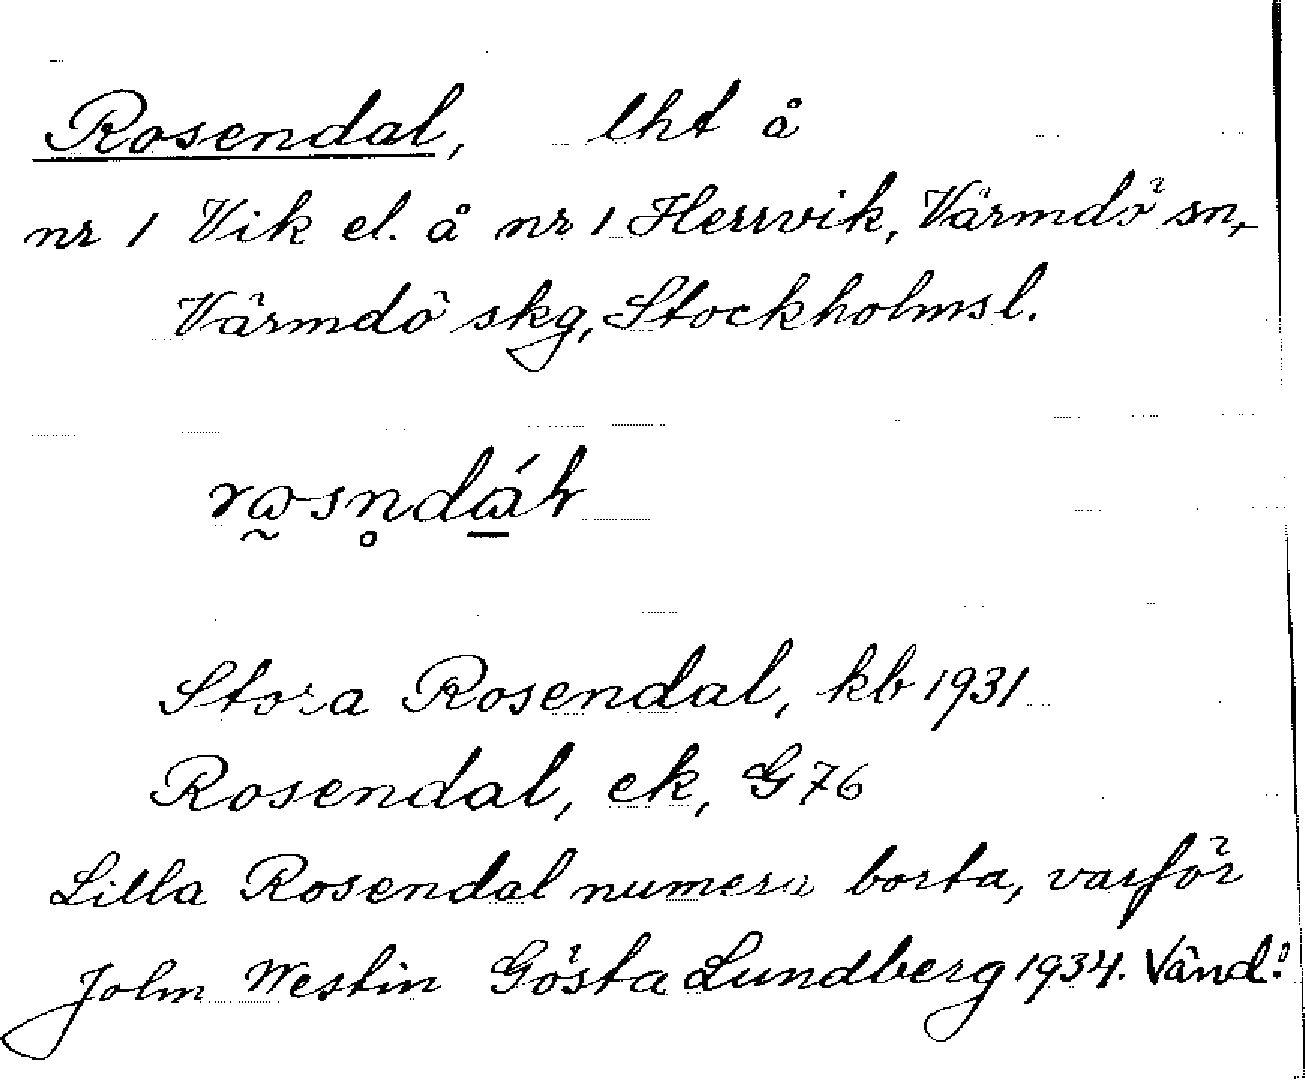 Rosendal, lht å
nr 1 Vik el. å nr 1 Herrvik, Värmdö sn,
Värmdö skg, Stockholms l.
Stora Rosendal, kb 1931
Rosendal, ek, G 76
Lilla Rosendal numera borta, varför
John Westin Gösta Lundberg 1934. Vänd!